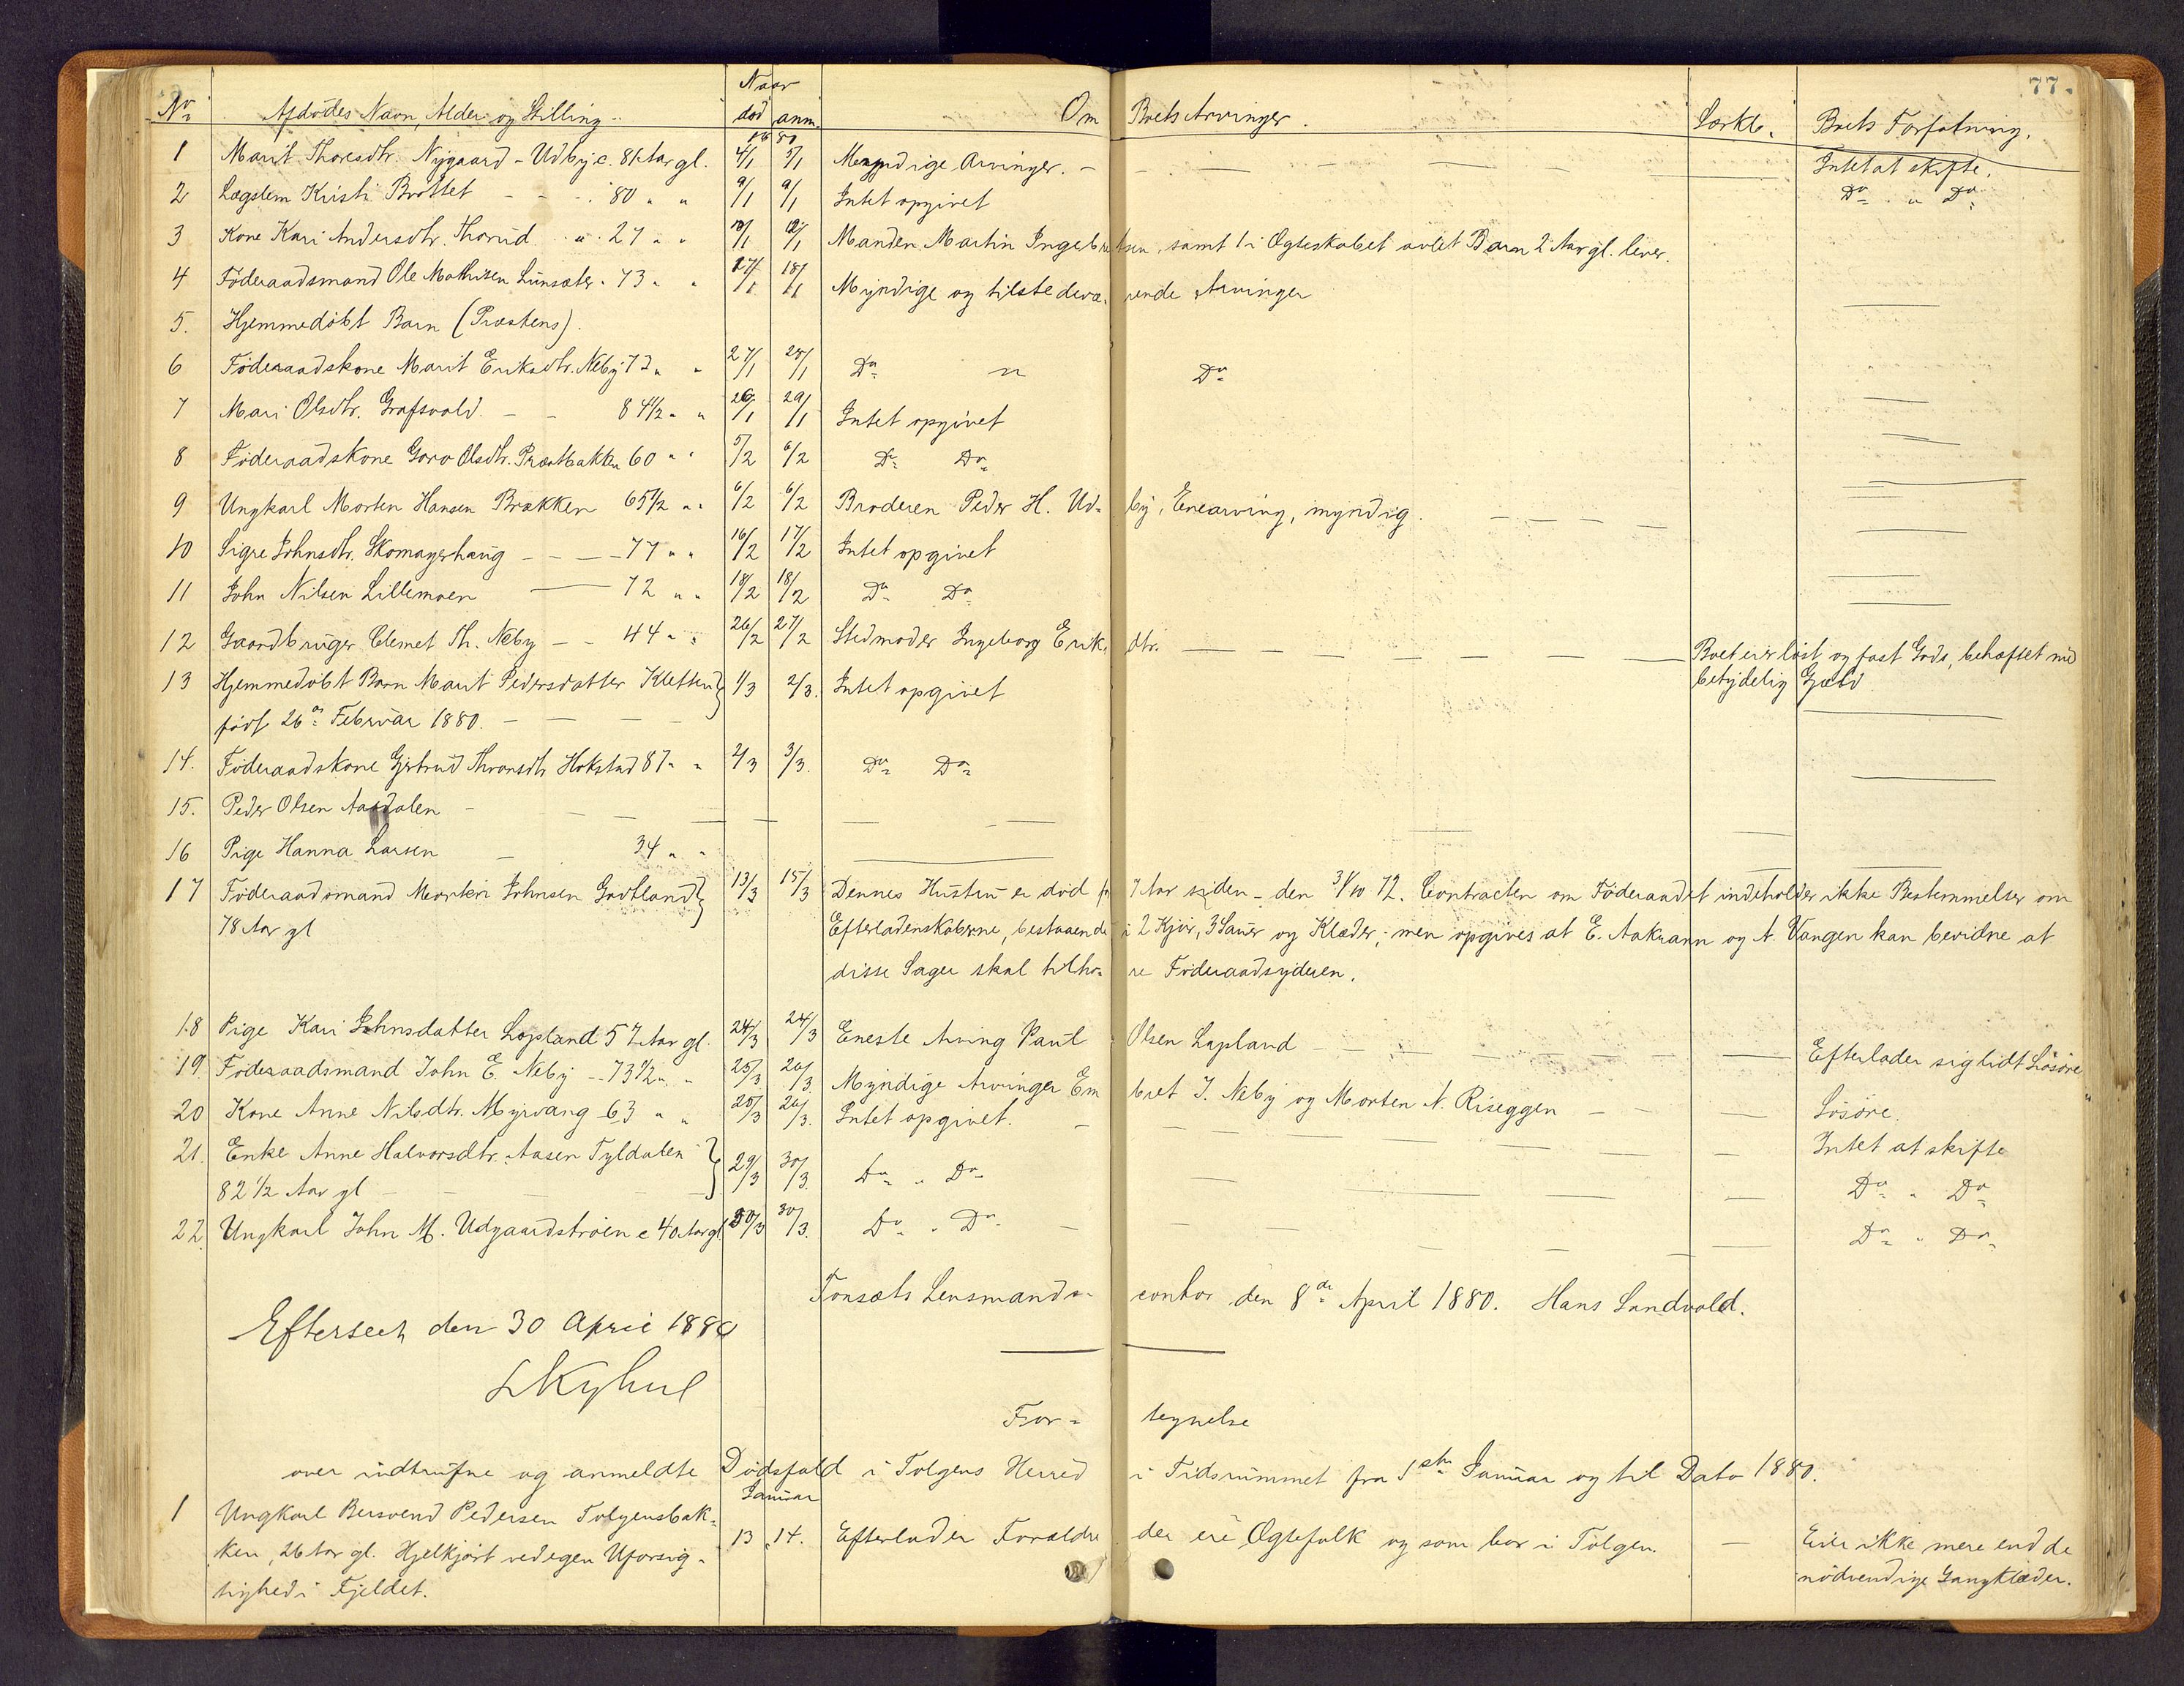 77.
Naar
No Afdødes Navn, Alder og Stilling død anm. Om Boets Arvinger. Særkb. Boets Forfatning.
1880
1 Marit Thoresdtr. Nygaard - Udby c. 81 Aar gl. 4/1 5/1 Myndige Arvinger. - Intet at skifte.
2 Lægslem Kristi Brottet - - 80 " " 9/1 9/1 Intet opgivet Do " Do
3 Kone Kari Andersdtr. Thorud " 27 " " 10/1 12/1 Manden Martin Ingebretsen, samt 1 i Ægteskabet avlet Barn 2 Aar gl. lever.
4 Föderaadsmand Ole Mathisen Lunsæter " 73 " " 17/1 18/1 Myndige og tilstedeværende Arvinger
5. Hjemmedöbt Barn (Præstens).
6 Föderaadskone Marit Eriksdtr. Neby 73 " " 27/1 28/1 Do " Do
7 Mari Olsdtr. Grafsvold - - 84 1/2 " " 26/1 29/1 Intet opgivet
8 Föderaadskone Goro Olsdtr. Præstbakken 60 " " 5/2 6/2 Do Do
9 Ungkarl Morten Hansen Brækken 65 1/2 " " 6/2 6/2 Broderen Peder H. Udby, Enearving, myndig.
10 Sigre Johnsdtr. Skomagerhaug - - - 77 " " 16/2 17/2 Intet opgivet
11 John Nilsen Lillemoen - 72 " " 18/2 18/2 Do Do
12 Gaardbruger Clemet Th. Neby - - 44 " " 26/2 27/2 Stedmoder Ingeborg Eriksdtr. - - - Boet eier löst og fast Gods, behæftet med
betydelig Gjæld
13 Hjemmedöbt Barn Marit Pedersdatter Kletten 1/3 2/3. Intet opgivet
födt 26de Februar 1880. - - -
14. Föderaadskone Gjertrud Thronsdtr Hokstad 87 " " 2/3 3/3. Do Do
15. Peder Olsen Aasdalen -
16 Pige Hanna Larsen - 34 " "
17 Föderaadsmand Morten Johnsen Godtland 13/3 15/3 Dennes Hustru er död for 7 Aar siden - den 31/10 72. Contracten om Föderaadet indeholder ikke Bestemmelser om
78 Aar gl Efterladenskaberne, bestaaende i 2 Kjör, 3 Sauer og Klæder, men opgives at E. Aakrann og A. Vangen kan bevidne at
disse Sager skal tilhöre Föderaadsyderen.
18 Pige Kari Johnsdatter Lapland 57 Aar gl. 24/3 24/3 Eneste Arving Paul Olsen Lapland - - - Efterlader sig lidt Lösöre
19. Föderaadsmand John E. Neby - 73 1/2 " " 25/3 26/3 Myndige Arvinger Embret J. Neby og Morten N. Riseggen - - - Lösöre.
20 Kone Anne Nilsdtr. Myrvang 63 " " 25/3 26/3. Intet opgivet. - Intet at skifte
21. Enke Anne Halvorsdtr. Aasen Tyldalen 29/3 30/3. Do " Do - Do " Do
82 1/2 Aar gl -
22. Ungkarl John M. Udgaardstrøen c 40 Aar gl. 30/3 30/3. Do " Do - Do " Do
Tonsæts Lensmandscontor den 8de April 1880. Hans Sandvold.
Efterseet den 30 April 1880
Fortegnelse
over indtrufne og anmeldte Dödsfald i Tolgens Herred i Tidsrummet fra 1ste Januar og til Dato 1880.
Januar
1 Ungkarl Bersvend Pedersen Tolgensbak-
ken, 26 Aar gl. Ihjelkjört ved egen Uforsig- 13 14. Efterlader Forældre der ere Ægtefolk og som bor i Tolgen. - Eier ikke mere end de
tighed i Fjeldet. nödvendige Gangklæder.